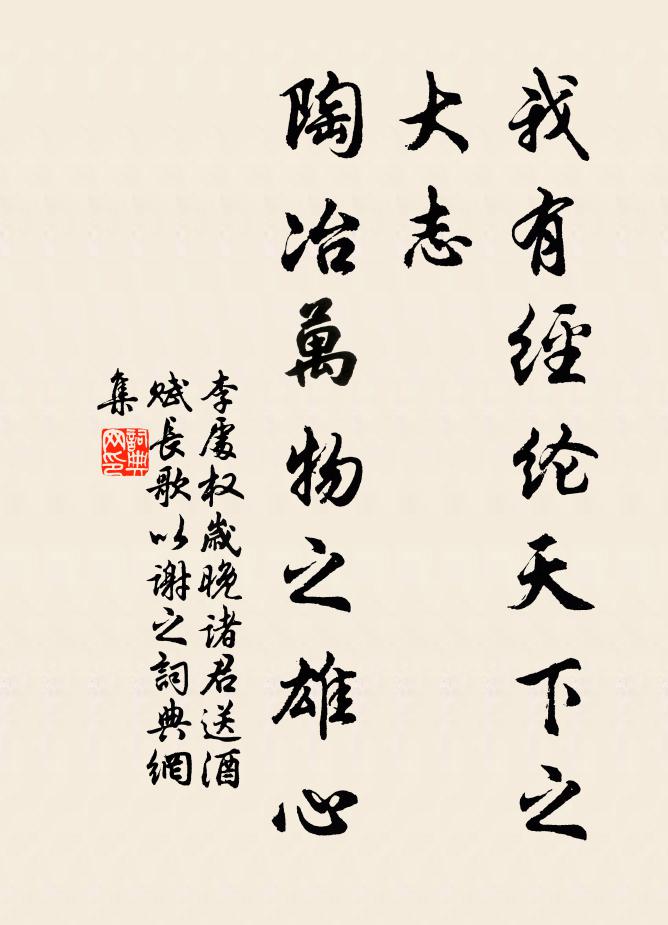 我有經纶天下之
大志
陶冶萬物之雄心
李處权歲晚诸君送酒
赋長歌以谢之詞典網
集
詞典
网印